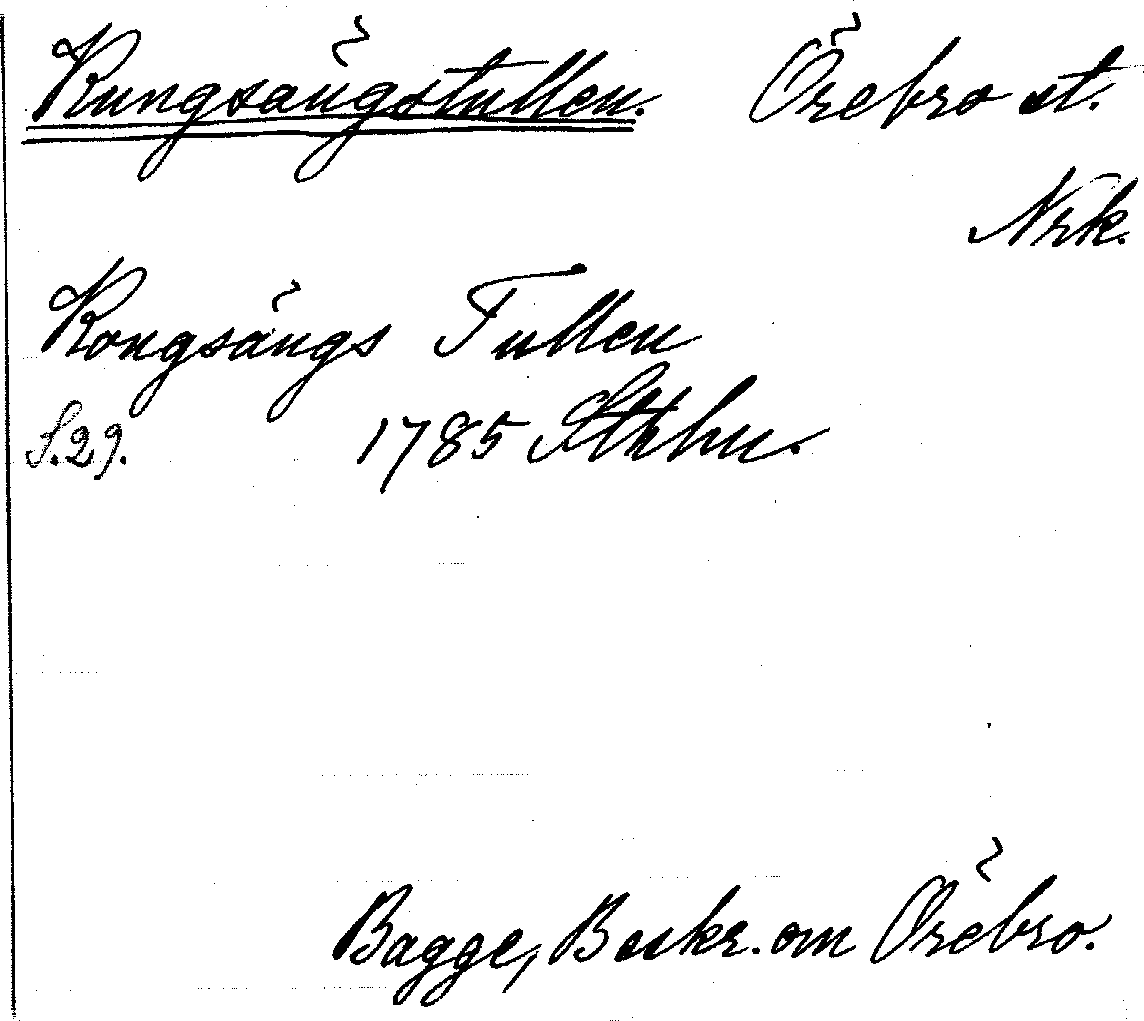 Kungsängstullen. Örebro st.
Nrk.
Kongsängs Tullen
S.29. 1785 Sthlm.
Bagge, Beskr. om Örebro.